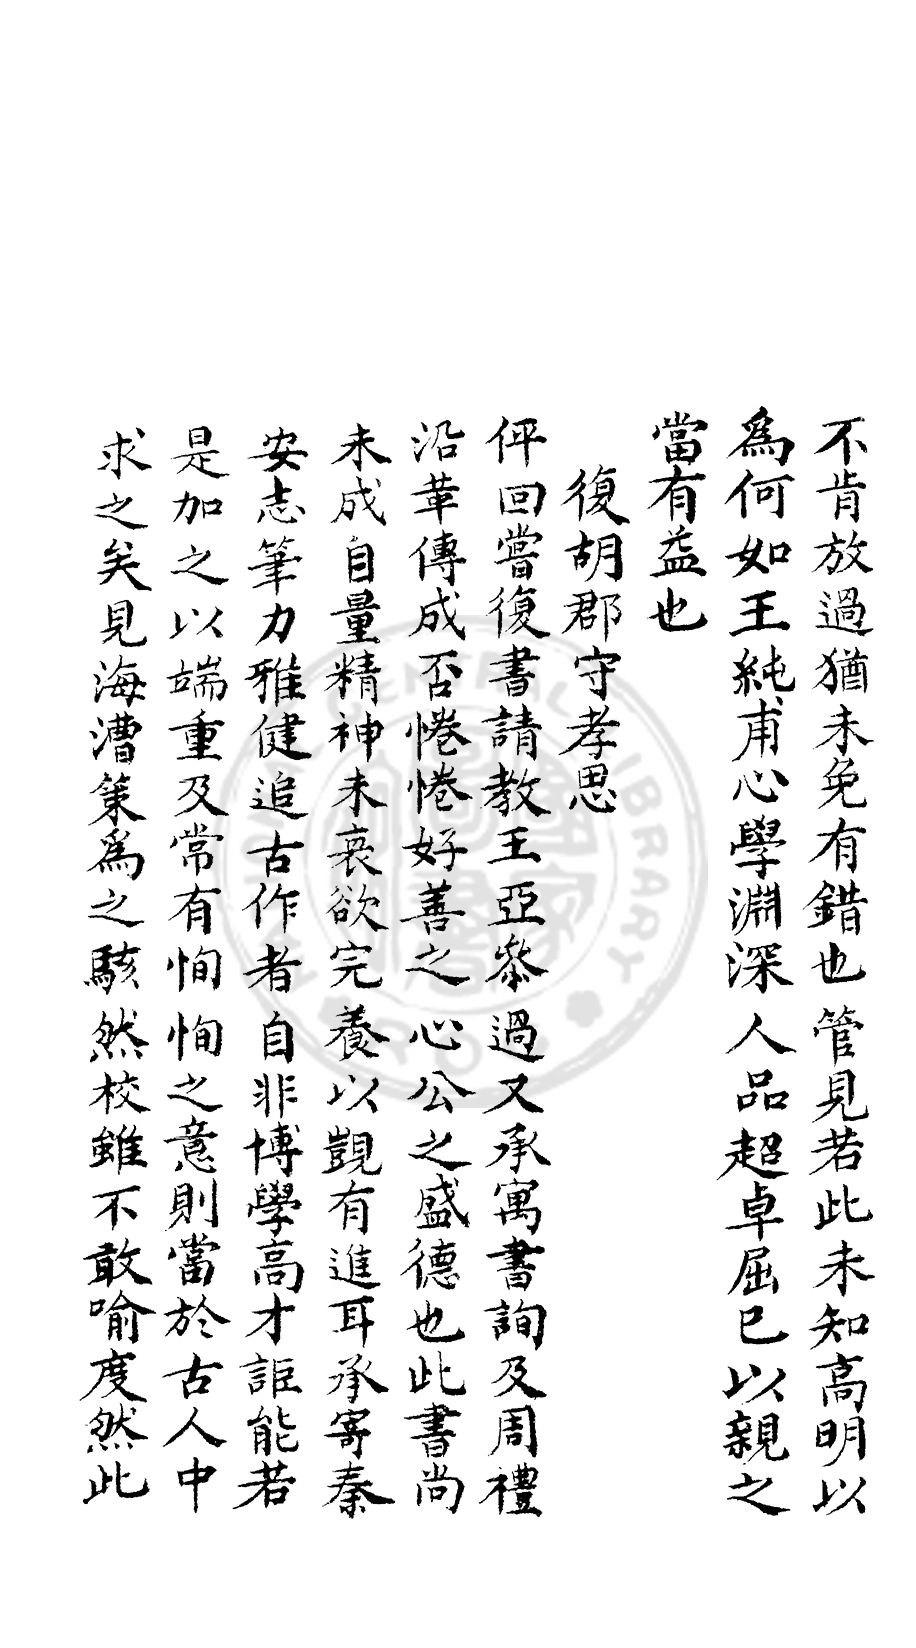 不肯放過猶未免有錯也管見若此未知高明以
爲何如王純甫心學淵深人品超卓屈己以親之
當有益也
復胡郡守孝思
伻回嘗復書請教王亞叅過又承寓書詢及周禮
沿革傳成否惓惓好善之心公之盛德也此書尚
未成自量精神未衰欲完養以覬有進耳承寄秦
安志筆力雅健追古作者自非博學高才詎能若
是加之以端重及常有恂恂之意則當於古人中
求之矣見海漕策爲之駭然校雖不敢喻度然此
NATIONAL CENTRAL LIBRARY